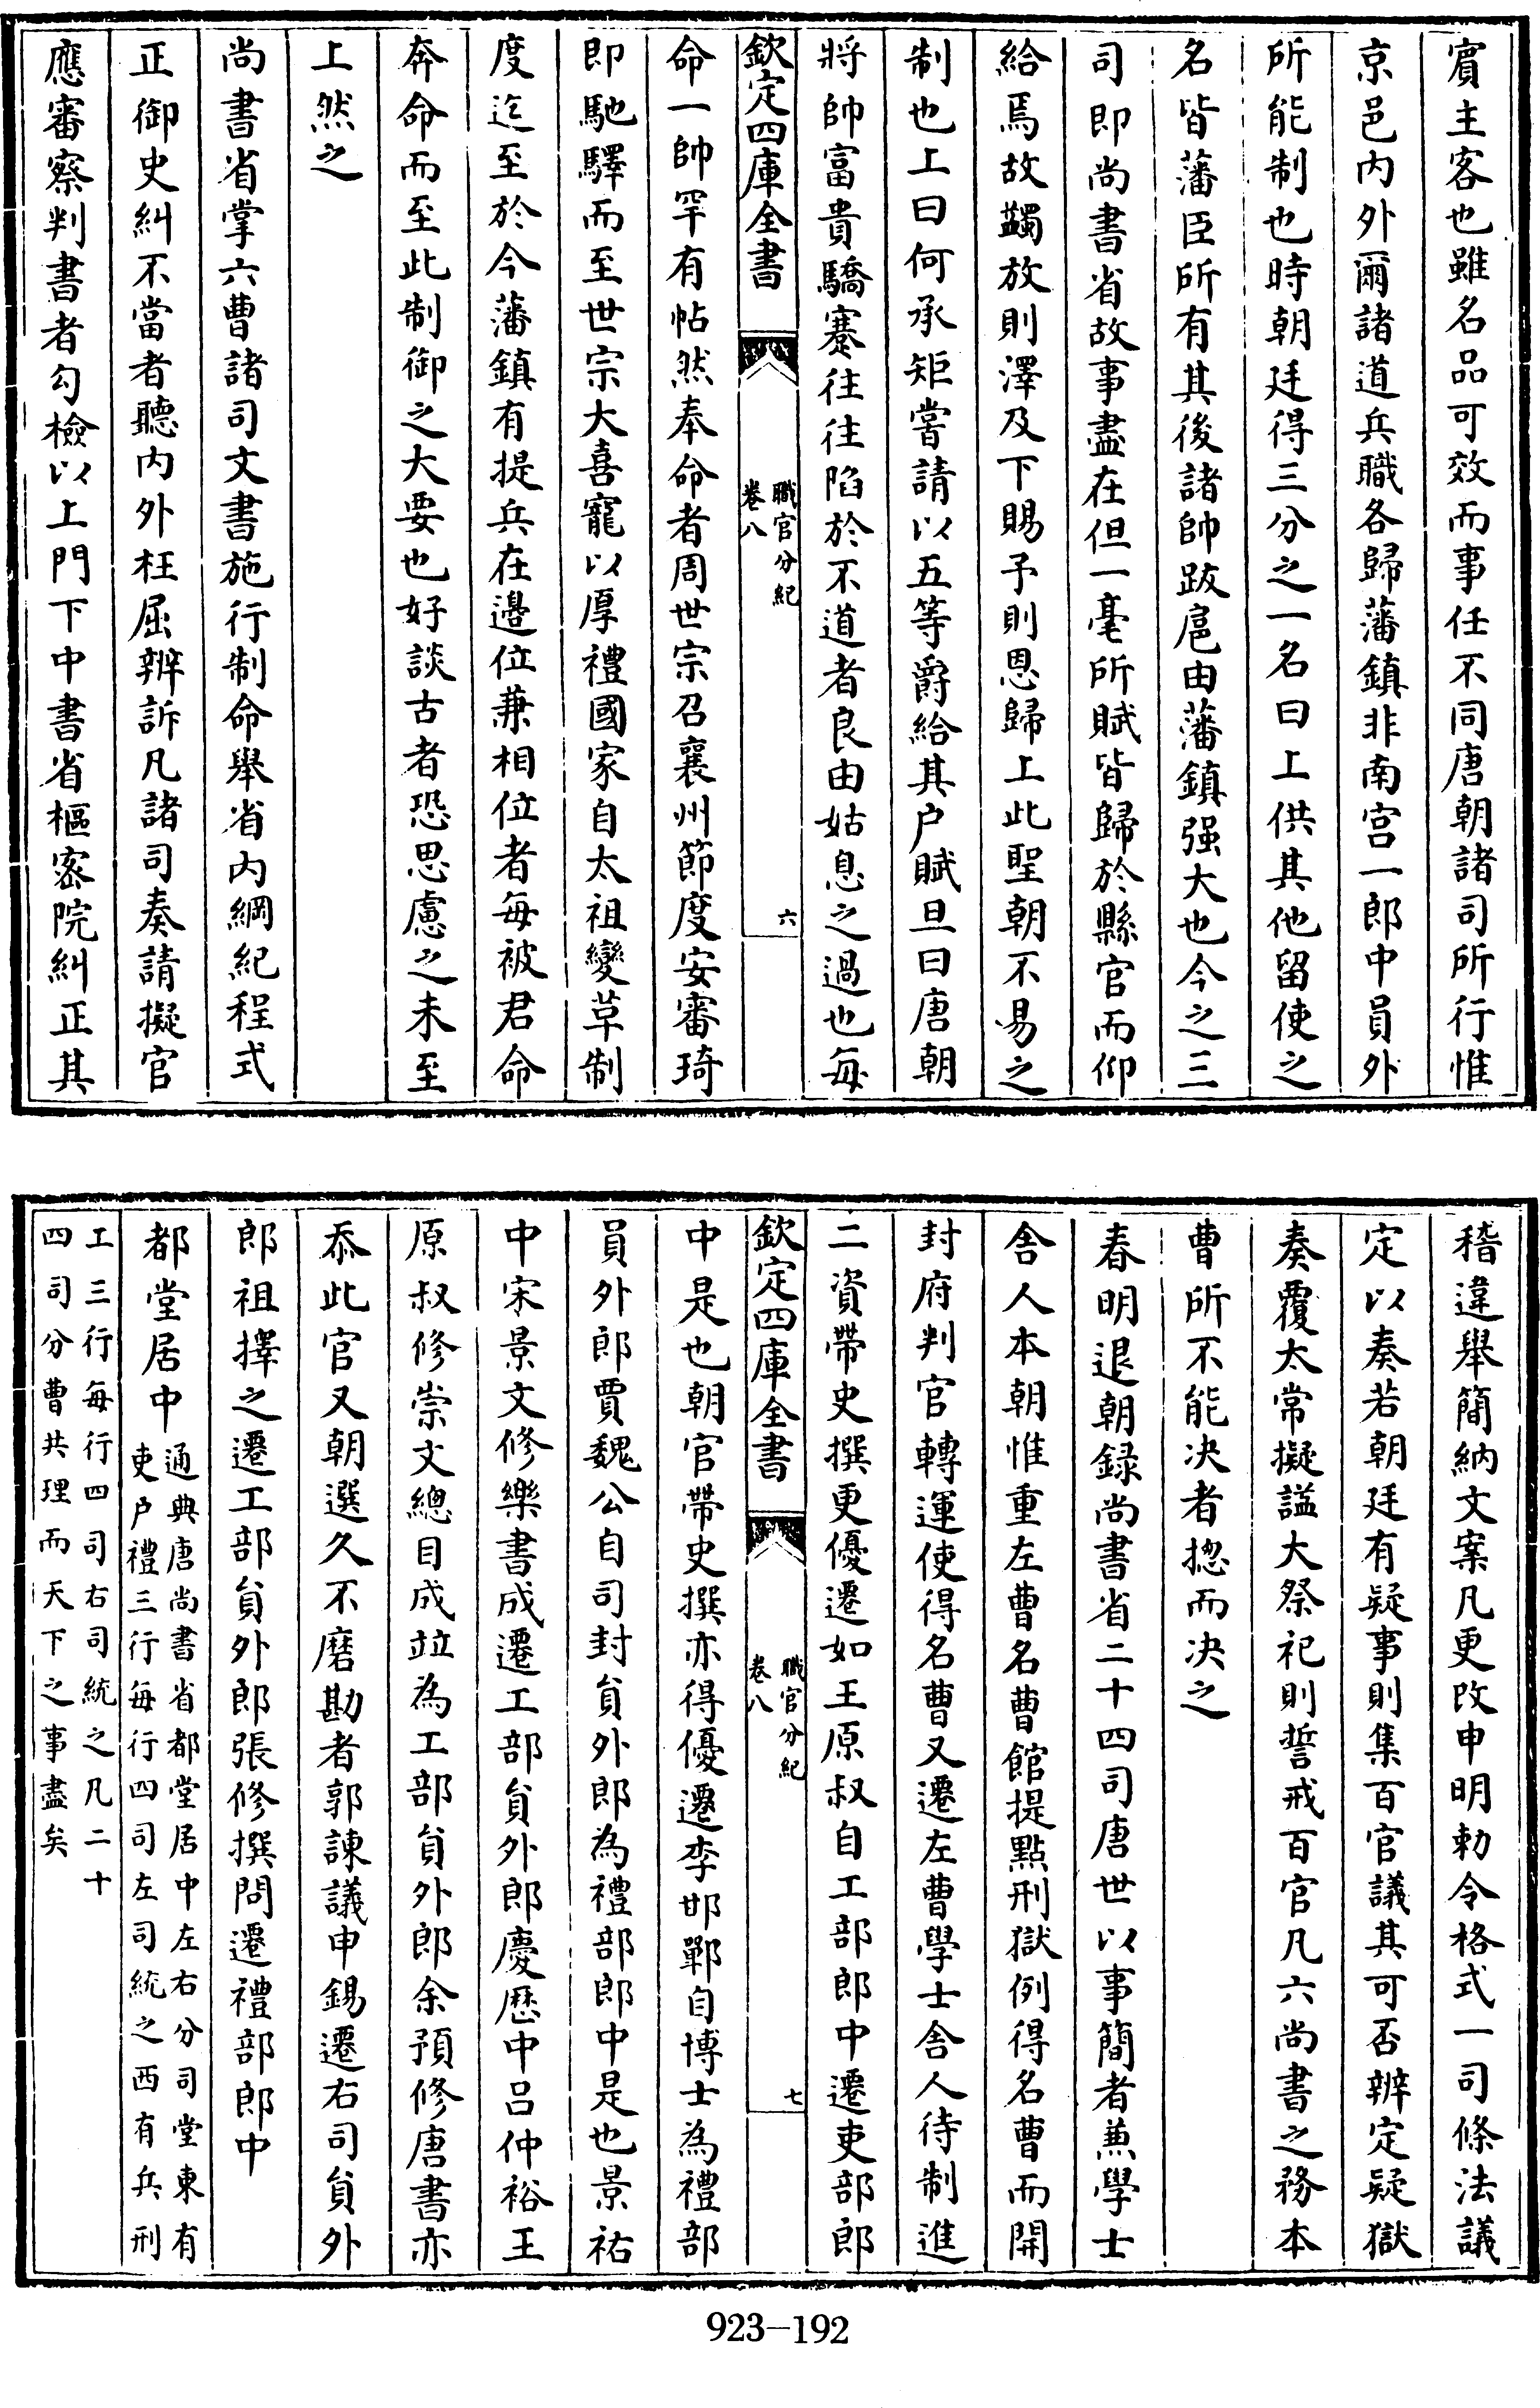 賔主客也雖名品可效而事任不同唐朝諸司所行惟
京邑内外爾諸道兵職各歸藩鎮非南宫一郎中員外
所能制也時朝廷得三分之一名曰上供其他留使之
名皆藩臣所有其後諸帥跋扈由藩鎮强大也今之三
司即尚書省故事盡在但一毫所賦皆歸於縣官而仰
給焉故蠲放則澤及下賜予則恩歸上此聖朝不易之
制也上曰何承矩嘗請以五等爵給其户賦旦曰唐朝
將帥富貴驕蹇往往陷於不道者良由姑息之過也每
欽定四庫全書
職官分紀
卷八
六
命一帥罕有帖然奉命者周世宗召襄州節度安審琦
即馳驛而至世宗大喜寵以厚禮國家自太祖變草制
度迄至於今藩鎮有提兵在邉位兼相位者每被君命
奔命而至此制御之大要也好談古者恐思慮之未至
上然之
尚書省掌六曹諸司文書施行制命舉省内綱紀程式
正御史糾不當者聽内外枉屈辨訴凡諸司奏請擬官
應審察判書者勾檢以上門下中書省樞宻院糾正其
稽違舉簡納文案凡更改申明勅令格式一司條法議
定以奏若朝廷有疑事則集百官議其可否辨定疑獄
奏覆太常擬謚大祭祀則誓戒百官凡六尚書之務本
曹所不能决者揔而决之
春明退朝録尚書省二十四司唐世以事簡者兼學士
舍人本朝惟重左曹名曹館提點刑獄例得名曹而開
封府判官轉運使得名曹又遷左曹學士舍人待制進
二資帶史撰更優遷如王原叔自工部郎中遷吏部郎
欽定四庫全書
職官分紀
卷八
七
中是也朝官帶史撰亦得優遷李邯鄲自博士為禮部
員外郎賈魏公自司封負外郎為禮部郎中是也景祐
中宋景文修樂書成遷工部負外郎慶歴中吕仲裕王
原叔修崇文總目成竝為工部負外郎余預修唐書亦
忝此官又朝選久不磨勘者郭諫議申錫遷右司負外
郎祖擇之遷工部負外郎張修撰問遷禮部郎中
都堂居中通典唐尚書省都堂居中左右分司堂東有
吏户禮三行每行四司左司統之西有兵刑
工三行每行四司右司統之凡二十
四司分曹共理而天下之事盡矣
923—192